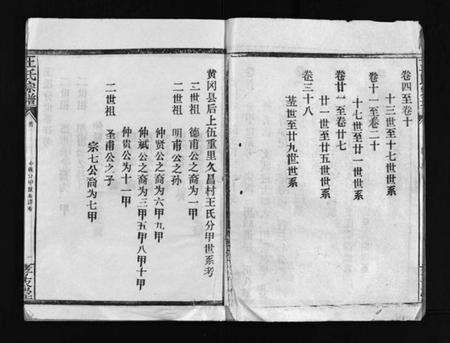 卷四至卷十
十三世至十七世世系
卷十一至卷二十
十七世至廿一世世系
卷廿一至卷廿七
廿一世至廿五世世系
卷三十八
至世至廿九世世系
黄冈县后上伍重里久昌村王氏分甲世系考
三世祖 德甫公之裔为一甲
二世祖 明甫公之孙
仲贤公之裔为六甲九甲
仲斌公之裔为三甲五甲八甲十甲
仲贵公为十一甲
二世祖 圣甫公之子
宗七公裔为七甲
王氏宗谱